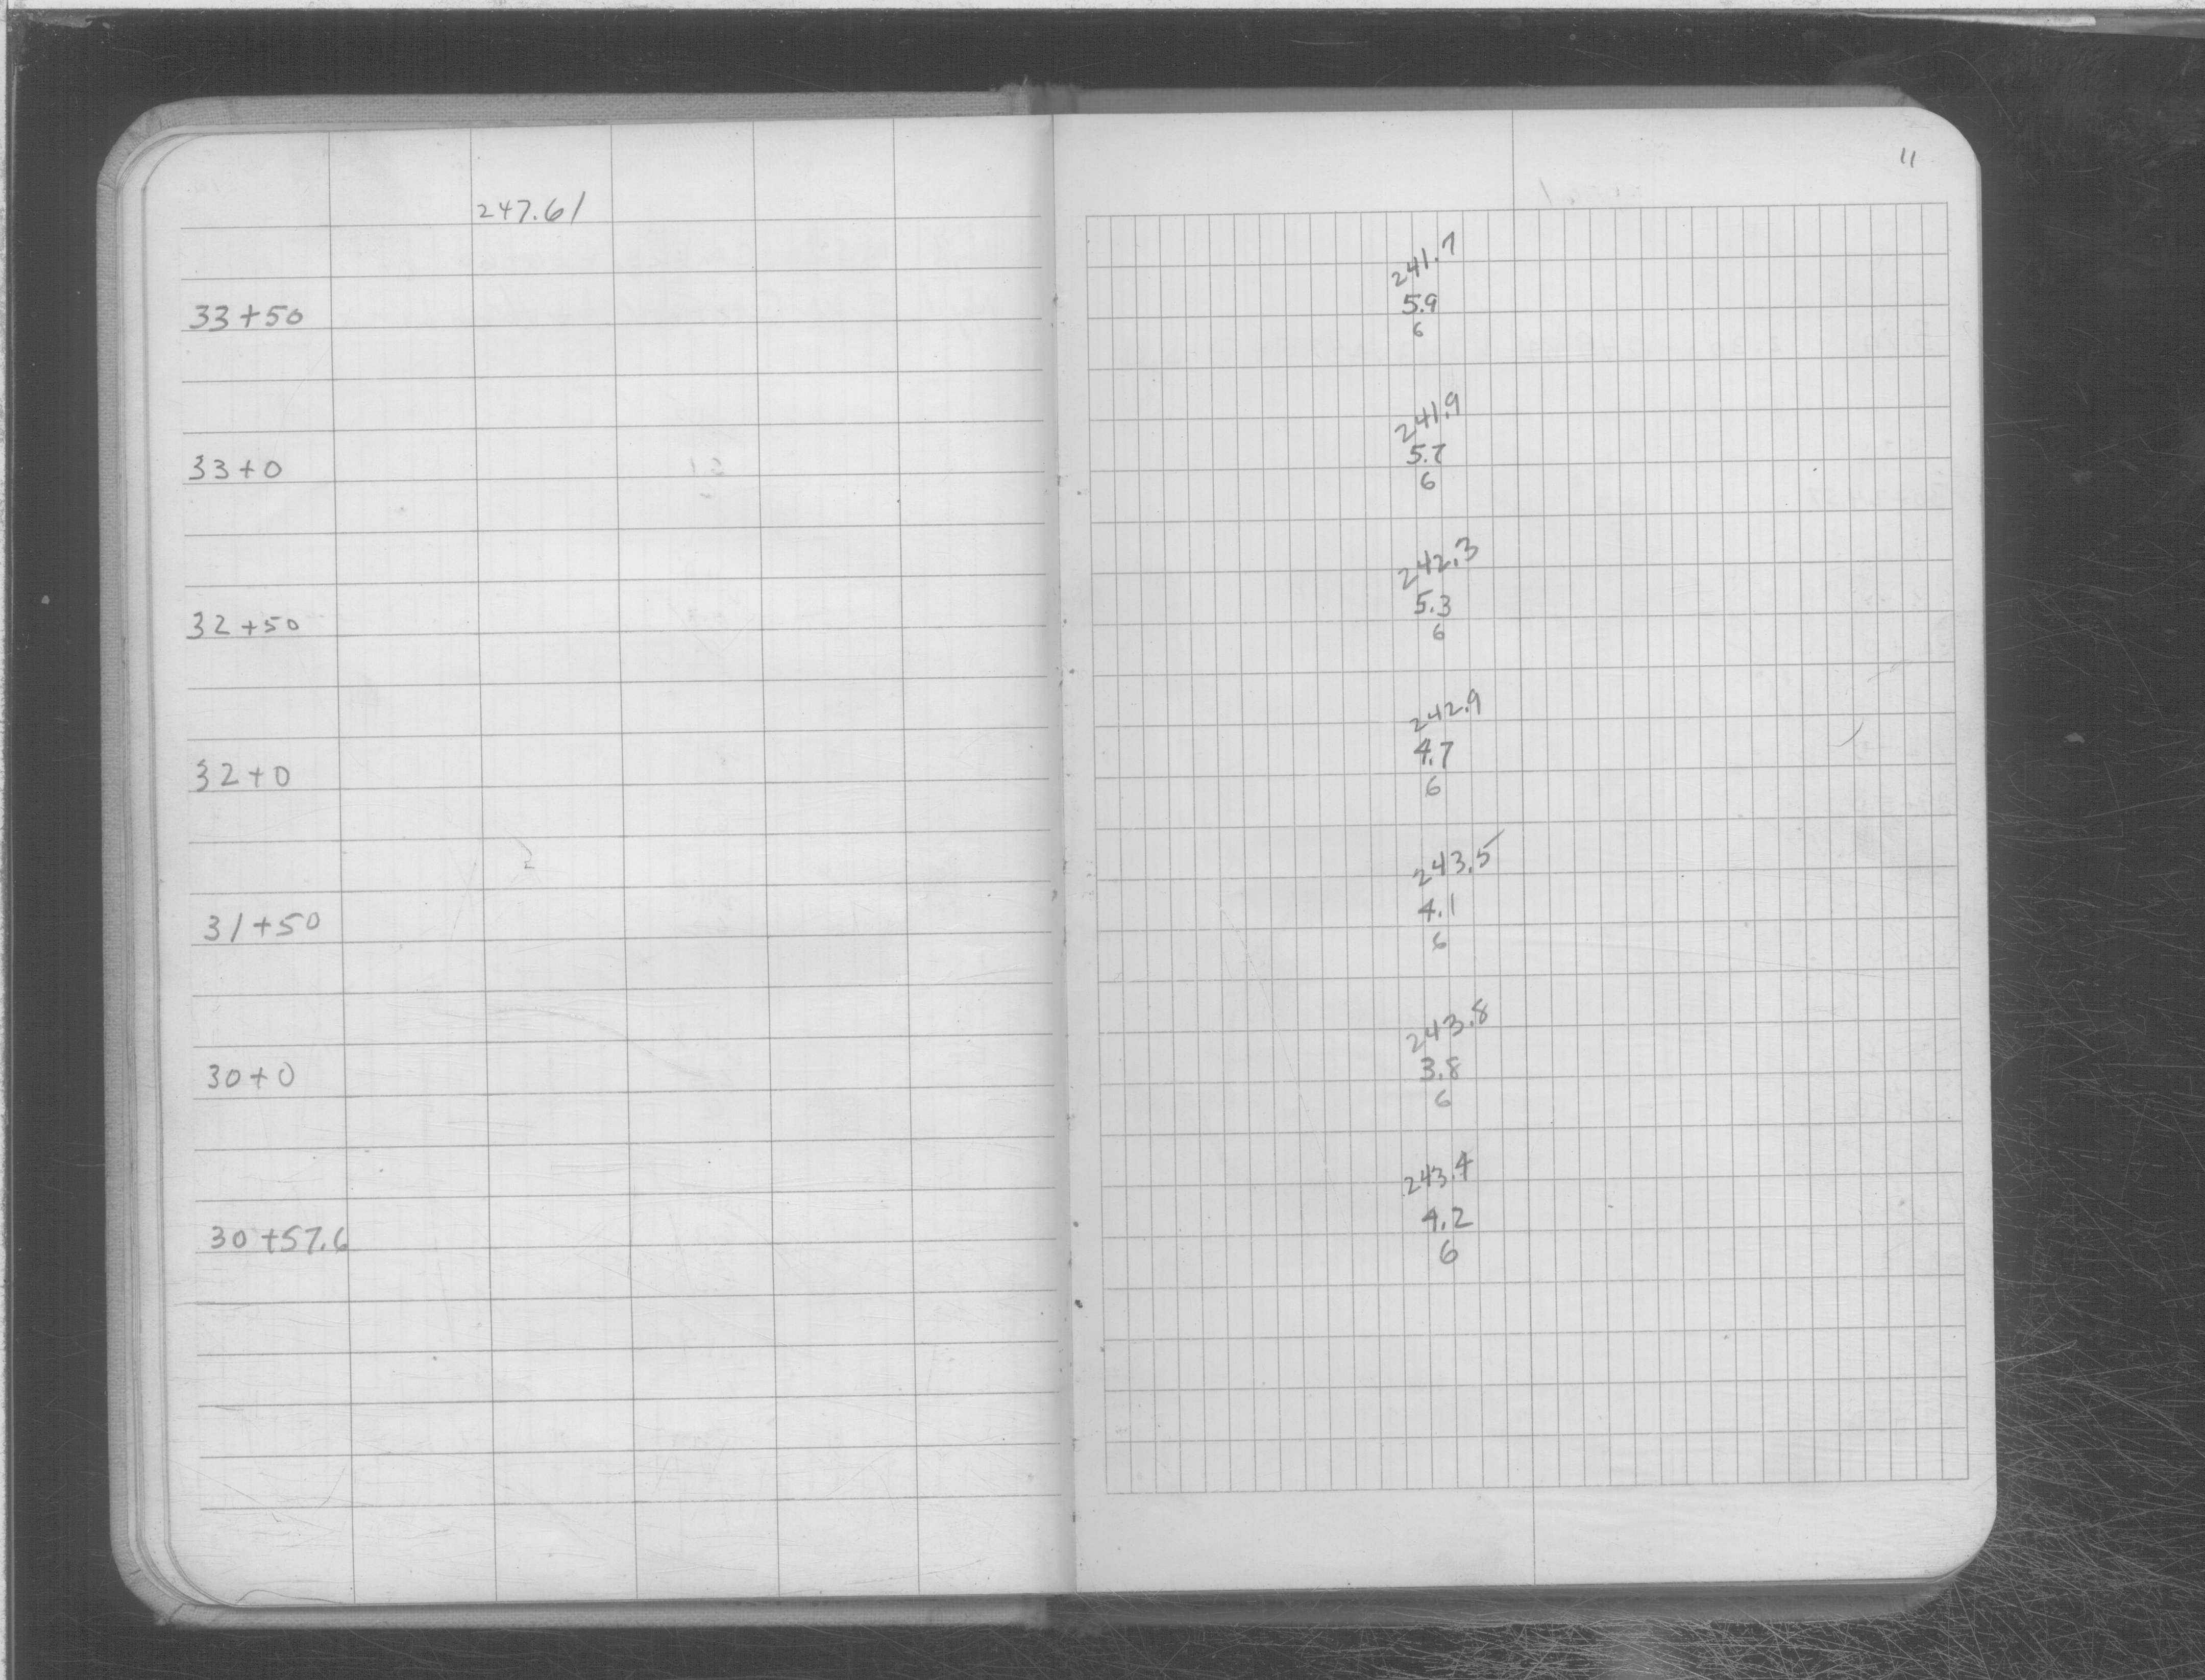 11
247.61
241.7
33+50 5.9
6
241.9
33+0 5.7
6
242.3
32+50 5.3
6
242.9
32+0 4.7
6
243.5
31+50 4.1
6
243.8
30+0 3.8
6
243.4
30+57.6 4.2
6